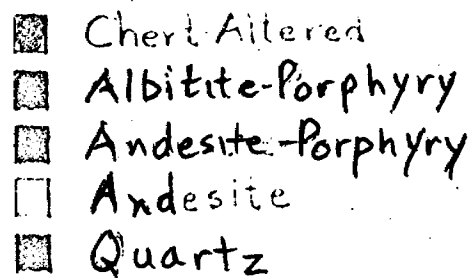 Chert Altered
Albitite-Porphyry
Andesite-Porphyry
Andesite
Quartz